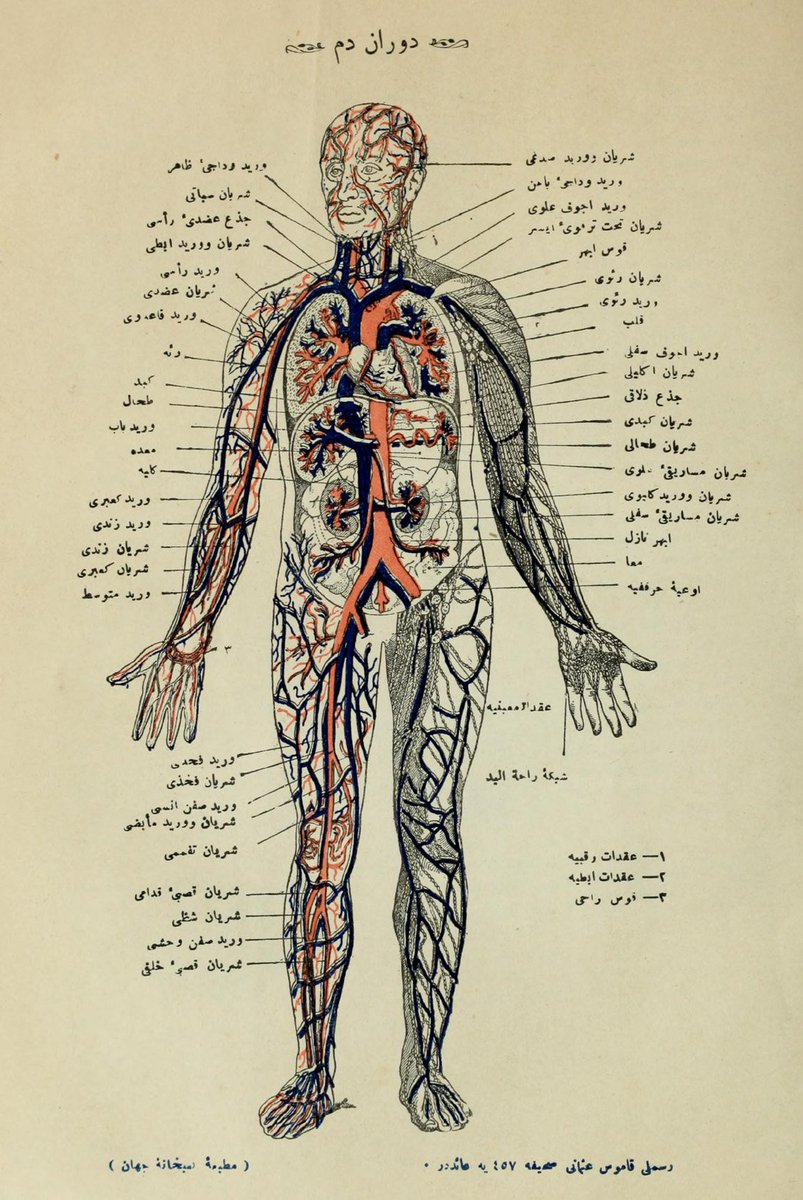 دوران دم
شریان و ورید صدغی
ورید وداجیٔ باطن
ورید اجوف علوی
شریان تحت ترقوی ایسر
قوس ابهر
شریان رئوی
ورید رئوی
قلب
ورید اجوف سفلی
شریان اکلیلی
جذع ذلاقی
شریان کبدی
شریان طحالی
شریان مساریقیٔ علوی
شریان وورید کلیوی
شریان مساریقیٔ سفلی
ابهر نازل
معا
اوعیهٔ حرقفیه
ورید وداجیٔ ظاهر
شریان سباتی
جذع عضدیٔ رأسی
شریان وورید ابطی
ورید رأسی
شریان عضدی
ورید قاعدوی
رئه
کبد
طحال
ورید باب
معده
کلیه
ورید کعبری
ورید زندی
شریان زندی
شریان کعبری
ورید متوسط
٣
١
٢
عقدات مغبنیه
شبکهٔ راحة الید
ورید فخذی
شریان فخذی
ورید صفن انسی
شریان وورید مأبضی
شریان
شریان قصبیٔ قدامی
شریان شظی
ورید صفن وحشی
شریان قصبیٔ خلفی
١— عقدات رقبیه
٢— عقدات ابطیه
٣— قوس راحی
رسملی قاموس عثمانی صحیفه ٤٥٧ یه عائددر ٠
( مطبعهٔ جهان )